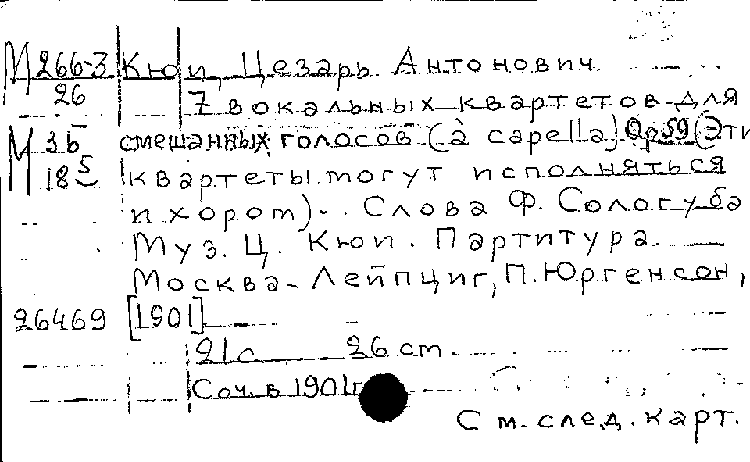 М 266-3 Кюи, Цезарь Антонович
26 7 вокальных квартетов для
М 3б смешанных голосов (à capella) Op 59 (Эти
18 5 квартеты могут исполняться
и хором). Слова Ф. Сологуба
Муз. Ц. Кюи. Партитура.
Москва-Лейпциг, П. Юргенсон,
26469 [1901]
21 с 26 cm.
Соч. в 1901г
См. след. карт.